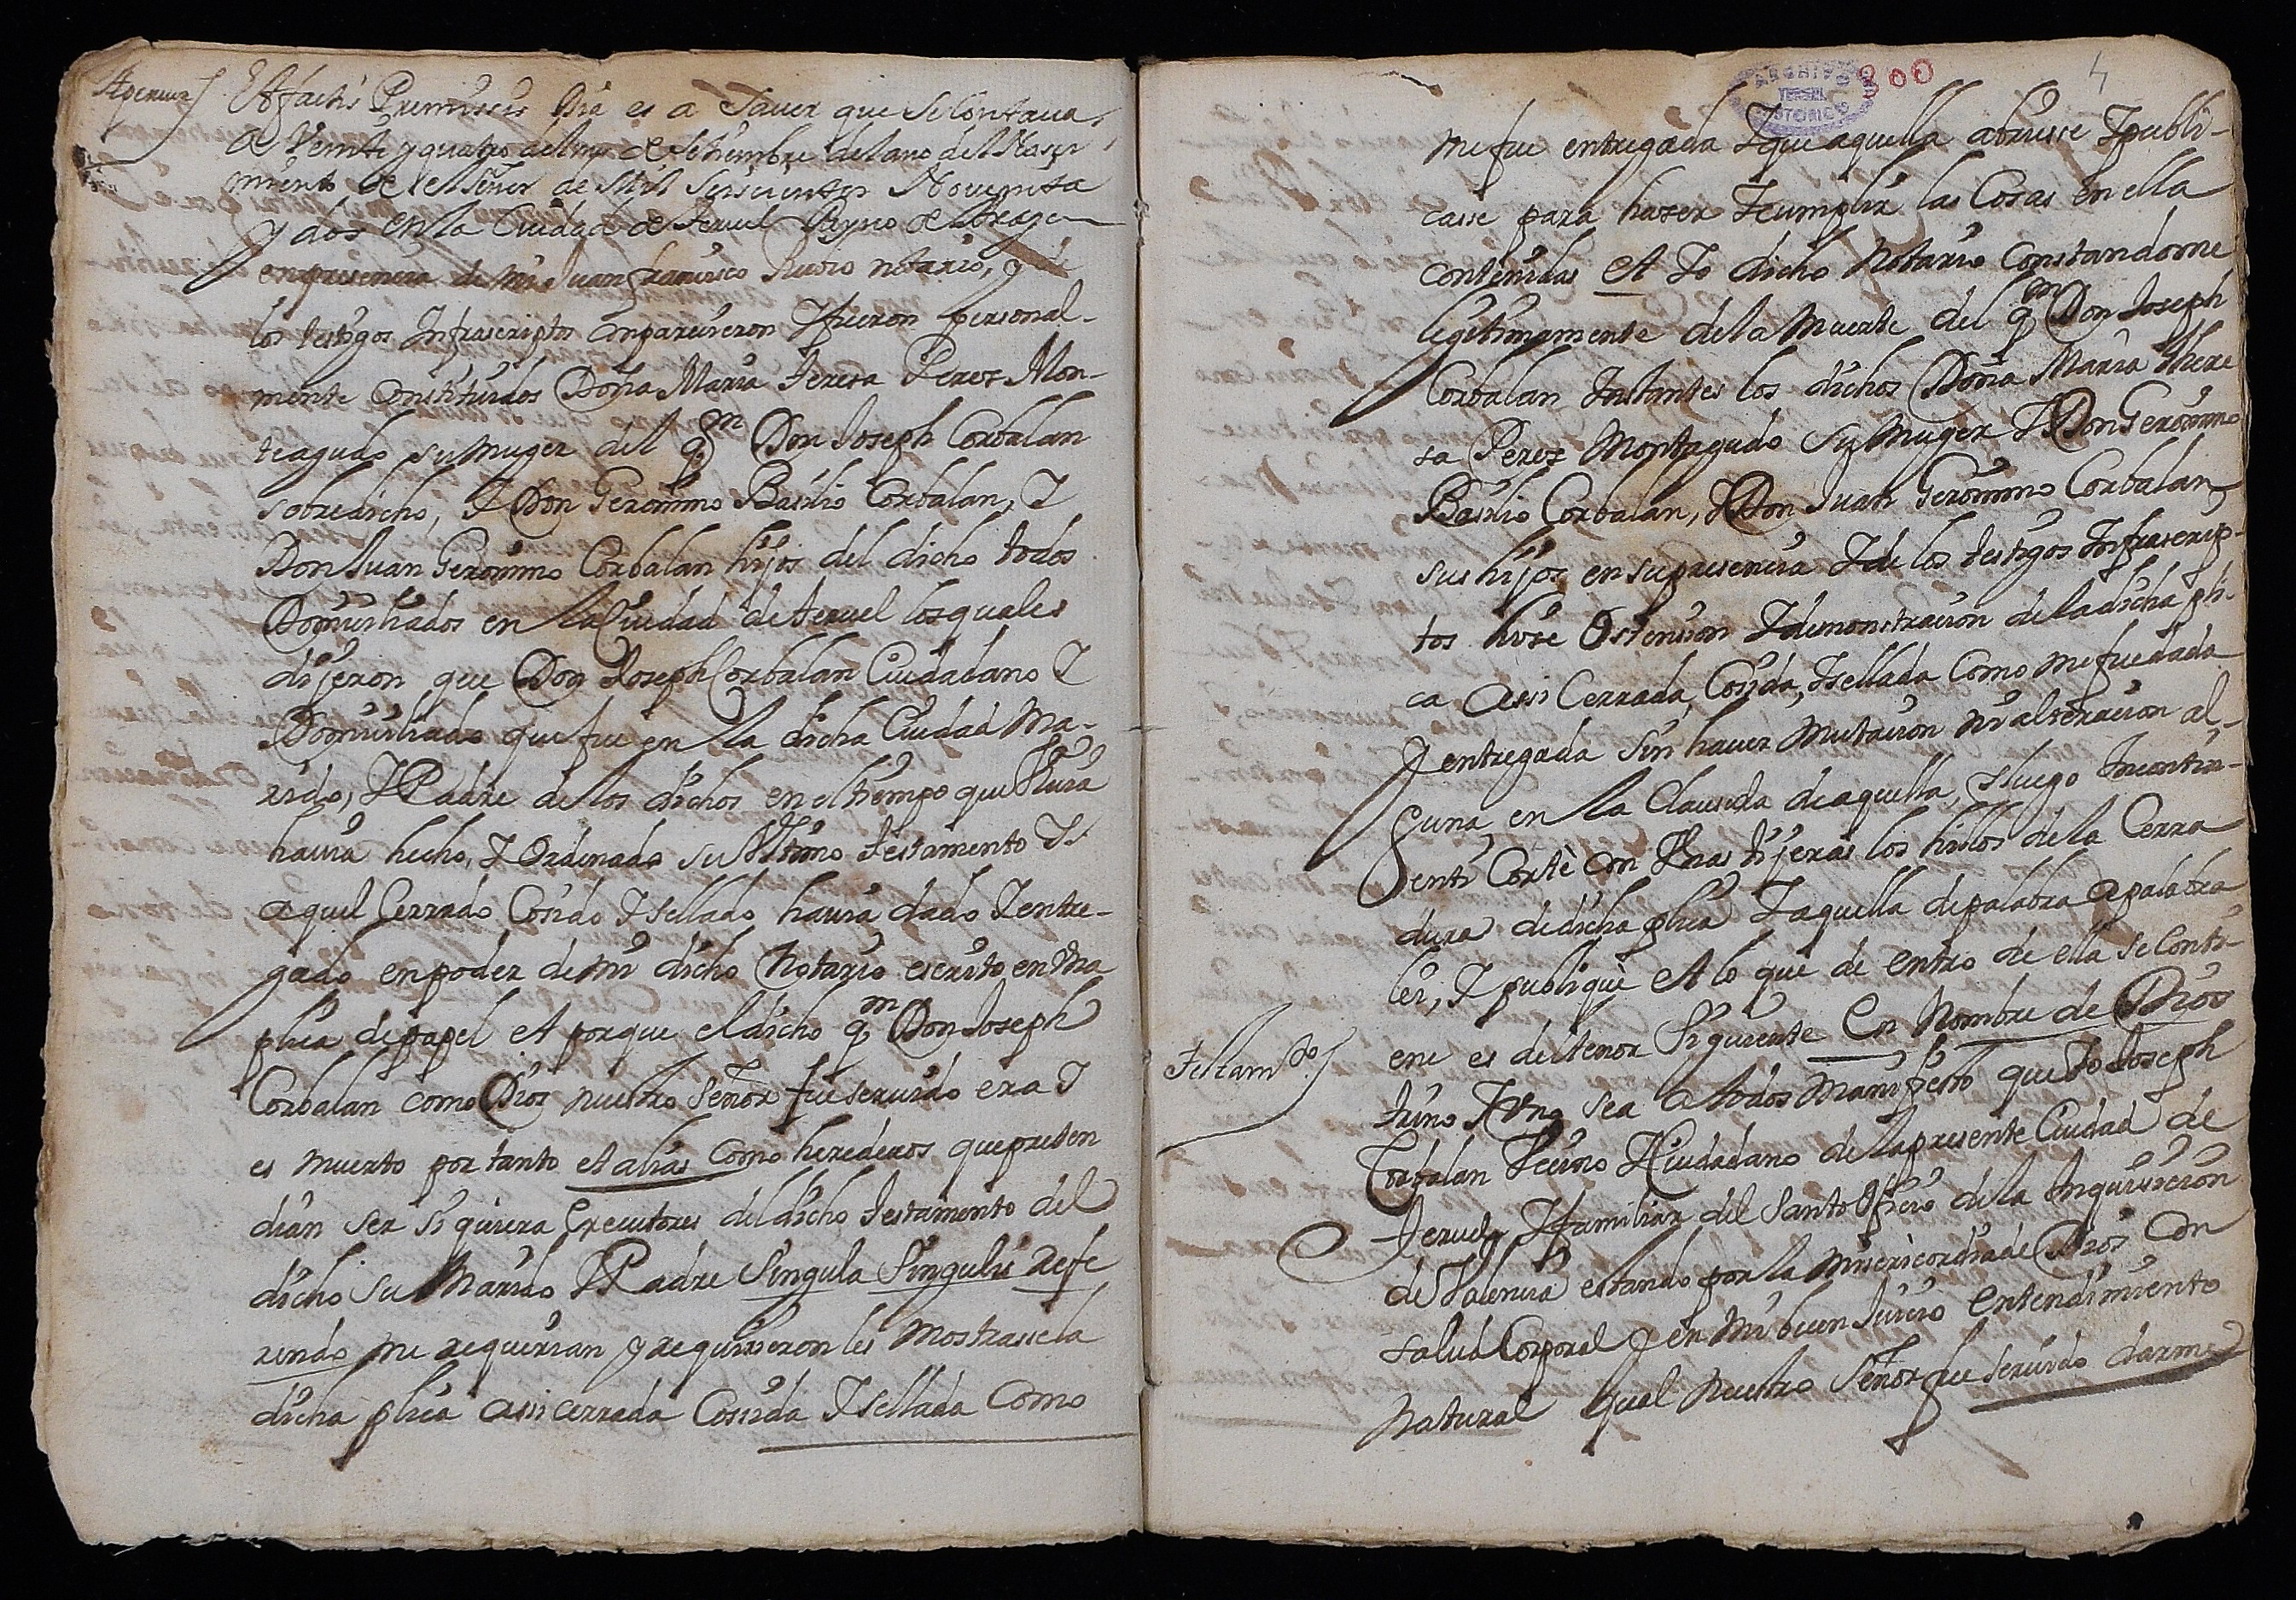 Apercion
Et factis Premissis Dia es a Saver que se Contaua
a Veinte y quatro del mes de Setiembre del ano del Nasci
miento de el señor de Mil Seiscientos Nouenta
y dos en la Ciudad de Teruel Reyno de Aragon
en presencia de mi Juan Francisco Rubio notario, y de
los testigos Infrascriptos Conparecieron Y fueron personal-
mente Constituidos Doña Maria Teresa Perez Mon-
teagudo su Muger del qm Don Joseph Corbalan
sobredicho, Y Don Geronimo Basilio Corbalan, Y
Don Juan Geronimo Corbalan hijos del dicho todos
Domiciliados en la Ciudad de teruel los quales
dijeron que Don Joseph Corbalan Ciudadano Y
Domiciliado que fue en la dicha Ciudad Ma-
rido, Y Padre de los dichos en el tiempo que Viuia
hauia hecho, Y Ordenado su Vltimo testamento Y
aquel Cerrado Cosido Y sellado hauia dado Y entre-
gado en poder de mi dicho Notario escrito en Vna
plica de papel et porque el dicho qm Don Joseph
Corbalan como Dios nuestro Señor fue seruido era Y
es muerto por tanto et alias Como herederos que preten
dian ser siquiera Executores del dicho testamento del
dicho su Marido Y Padre Singula Singulis Refe
rendo me requerian y requirieron les Mostrase la
dicha plica assi cerrada Cossida Y sellada Como
ARCHIVO
TERUEL
HISTORICO
300
4
me fue entregada Y que aquella abriesse Y publi-
casse para hazer Y cumplir las Cosas en ella
contenidas et Yo dicho Notario Constandome
legitimamente de la Muerte del qm Don Joseph
Corbalan Instantes los dichos Doña Maria there
sa Perez Montagudo su Muger Y Don Geronimo
Basilio Corbalan, Y Don Juan Geronimo Corbalan
sus hijos en su presencia Y de los testigos Infrascrip-
tos hize Ostension Y demonstracion de la dicha pli-
ca assi Cerrada, Cosida, Y sellada Como me fue dada
Y entregada sin hacer Mutacion ni alteracion al-
guna en la Clausula de aquella, Y luego Incontin-
enti Cortè con Vnas tijeras los hilos de la Cerra
dura de dicha plica Y aquella de palabra a palabra
lei, Y publiquè et lo que de entro de ella se Conti-
ene es del tenor Siguiente En Nombre de Dios
Testamto
trino Y Vno sea a todos Manifiesto que Yo Joseph
Corbalan Vecino Y Ciudadano de la presente Ciudad de
Teruel Y familiar del Santo Oficio de la Inquisicion
de Valencia estando por la Misericordia de Dios Con
salud Corporal Y en Mi buen Juicio entendimiento
Natural qual Nuestro Señor fue seruido darme